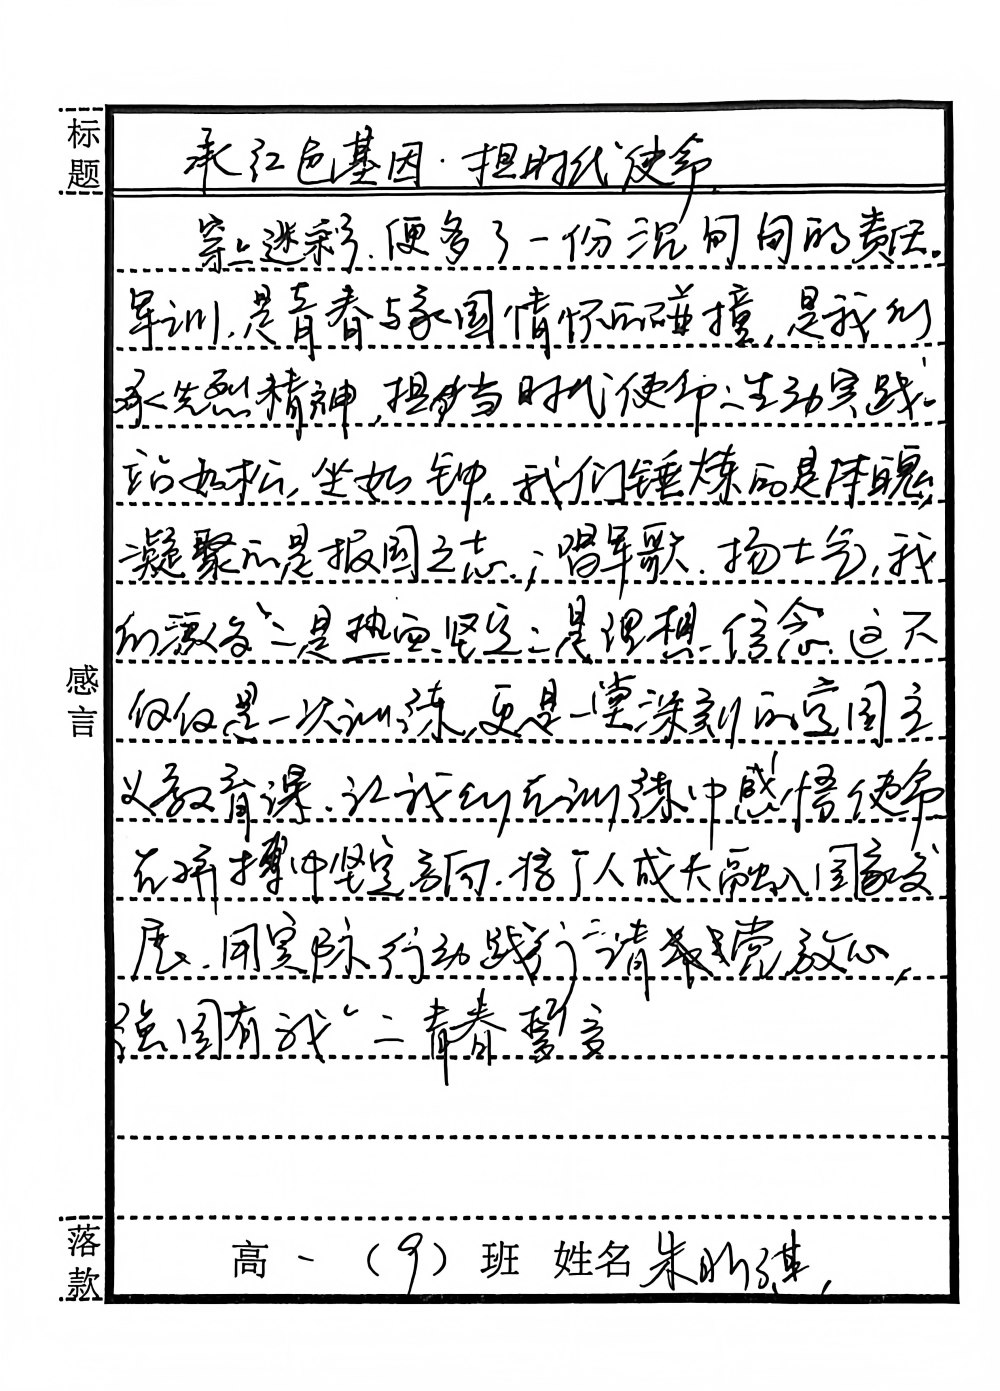 标题
承红色基因·担时代使命
穿上迷彩，便多了一份沉甸甸的责任。
军训，是青春与家国情怀的碰撞，是我们
承先烈精神，担当时代使命的生动实践。
站如松，坐如钟，我们锤炼的是体魄，
凝聚的是报国之志；唱军歌，扬士气，我
们激发的是热血，坚定的是理想信念。这不
仅仅是一次训练，更是一堂深刻的爱国主
义教育课，让我们在训练中感悟使命
在拼搏中坚定方向，将个人成长融入国家发
展，用实际行动践行“请党放心，
强国有我”的青春誓言
感言
落款
高一（9）班 姓名 朱